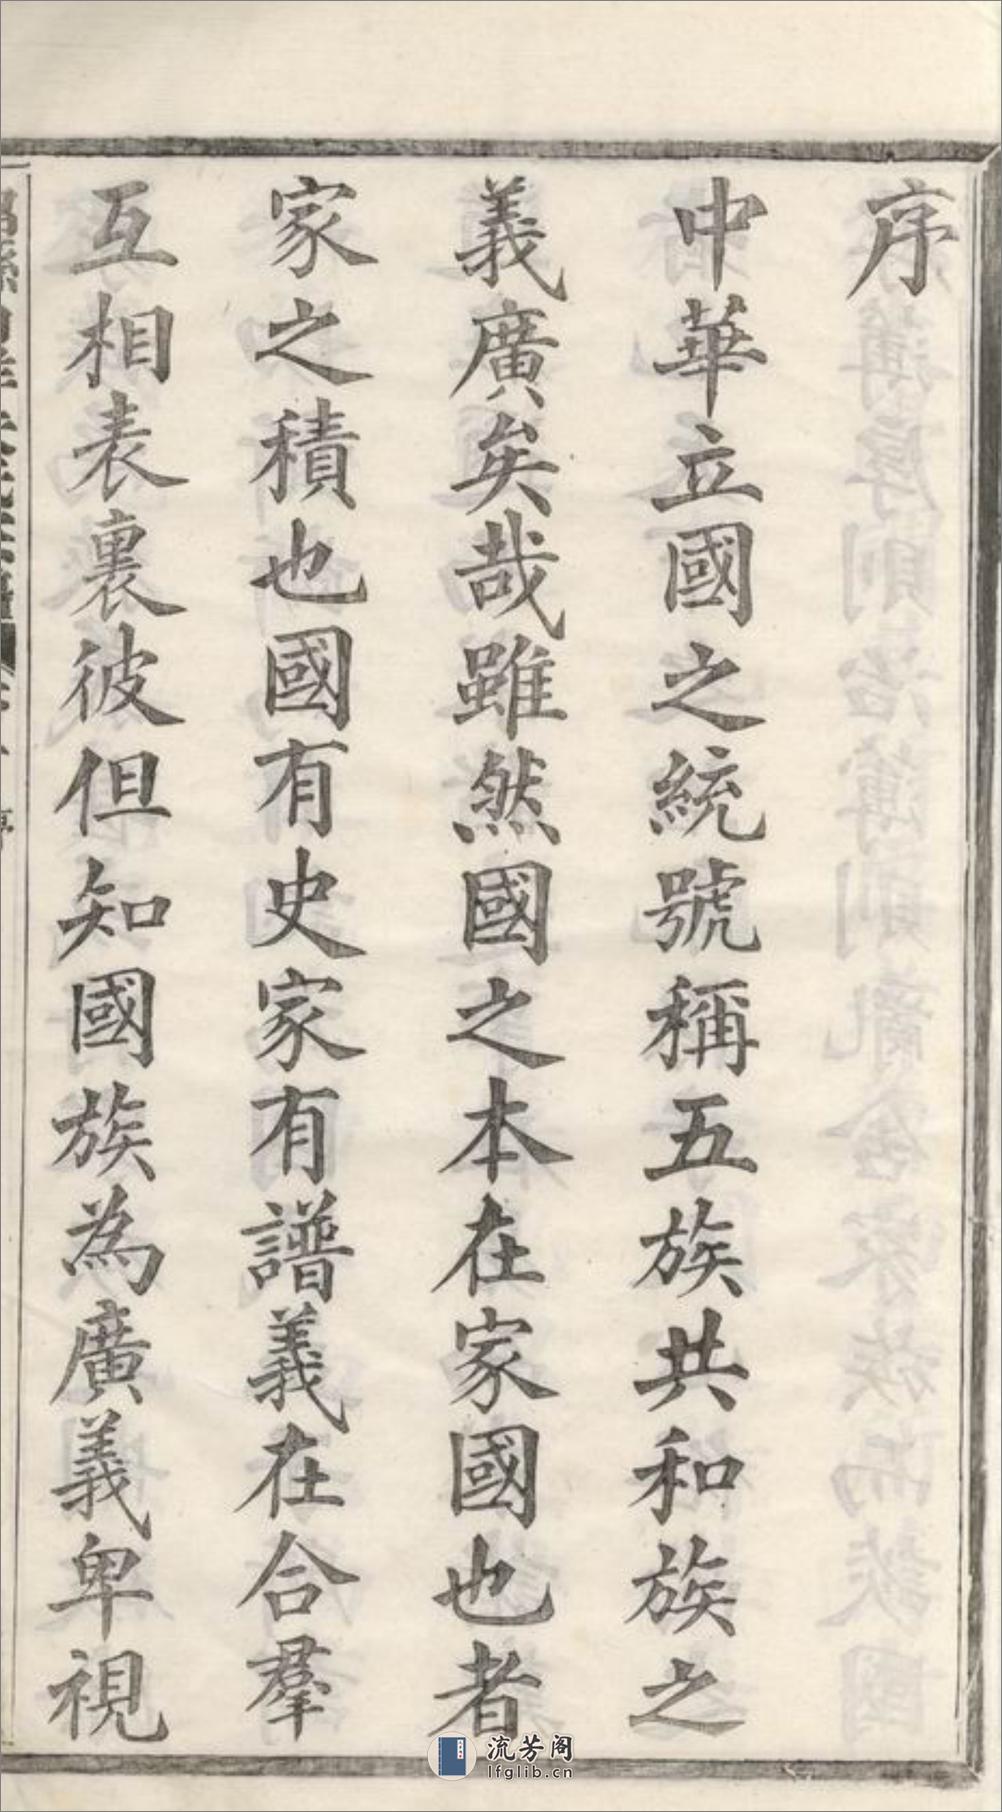 序
中華立國之統號稱五族共和族之
義廣矣哉雖然國之本在家國也者
家之積也國有史家有譜義在合羣
互相表裏彼但知國族為廣義卑視
流芳阁
lfglib.cn